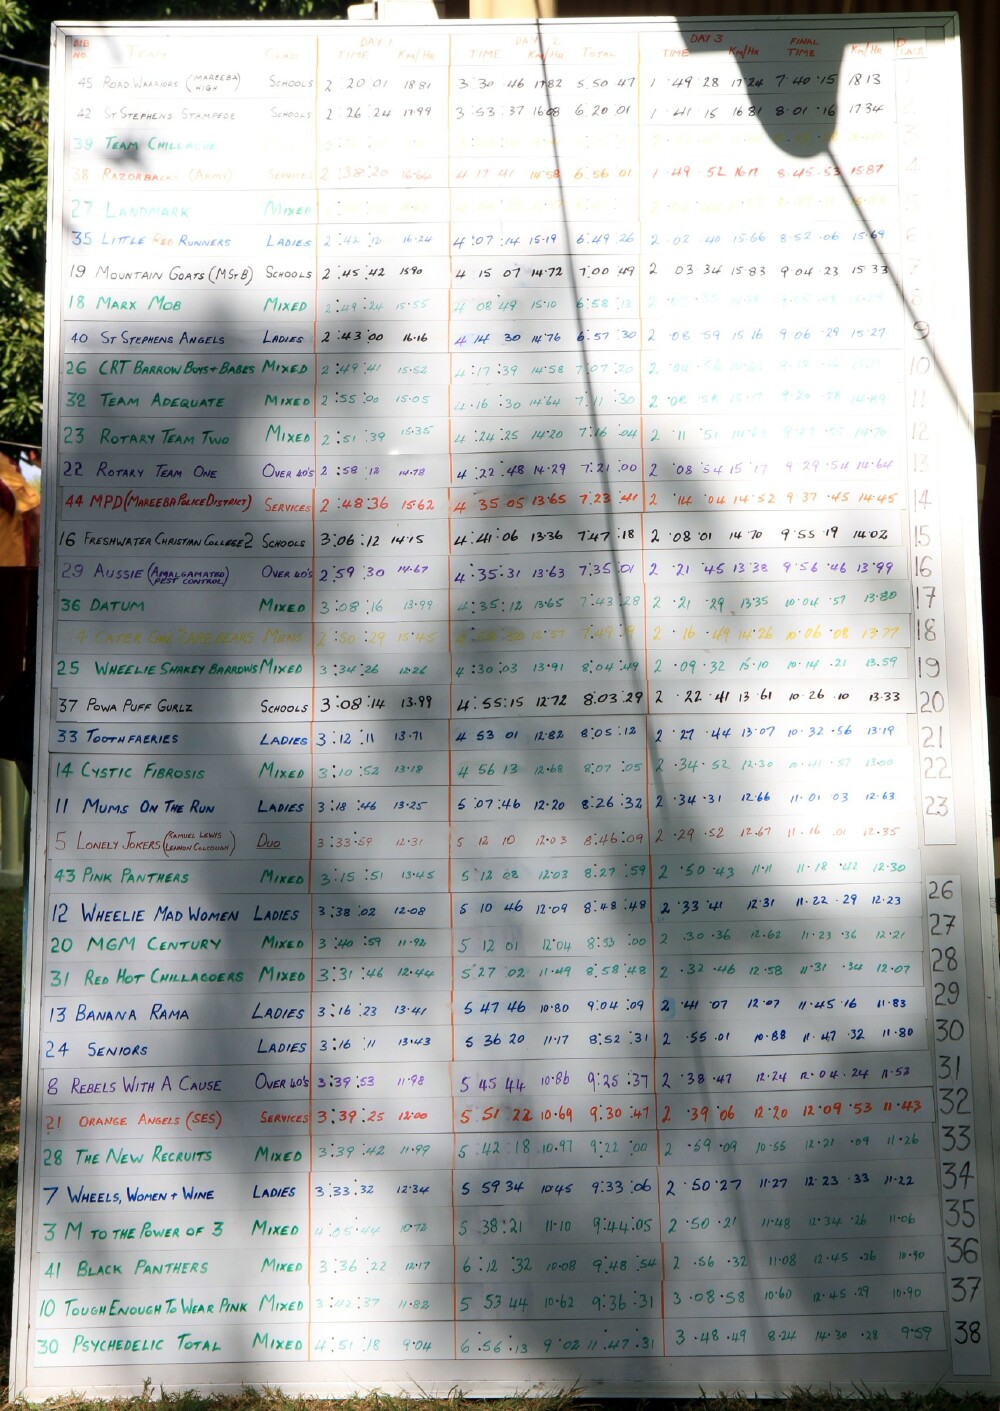 BIB NO. TEAM CLASS DAY 1 TIME KM/HR DAY 2 TIME KM/HR TOTAL DAY 3 TIME KM/HR FINAL TIME KM/HR PLACE
45 ROAD WARRIORS (MAREEBA HIGH) SCHOOLS 2:20 01 18 81 3 30 46 17 82 5 50 47 1 49 28 17 24 7 40 15 18 13
42 ST STEPHENS STAMPEDE SCHOOLS 2:26:24 17.99 3:53:37 16 08 6 20 01 1 41 15 16 81 8 01 16 17 34
39 TEAM CHILLAGOE
38 RAZORBACKS (ARMY) SERVICES 2:38:20 16.66 4 17 41 14 58 6:56 01 1 49 52 8 45 53 15.87 4
27 LANDMARK MIXED
35 LITTLE RED RUNNERS LADIES 2:42:12 16.24 4:07:14 15.19 6:49 26 2 02 40 15.66 8 52 06 15.69 6
19 MOUNTAIN GOATS (MSTB) SCHOOLS 2:45:42 15.90 4 15 07 14.72 7:00:49 2 03 34 15.83 9 04 23 15 33 7
18 MARX MOB MIXED 2:49:24 15.55 4 08 49 15.10 6:58:13 8
40 ST STEPHENS ANGELS LADIES 2:43:00 16.16 4 14 30 14 76 6:57:30 2 08 59 15 16 9 06 29 15.27 9
26 CRT BARROW BOYS + BABES MIXED 2:49:41 15.52 4:17:39 14.58 7:07:20 10
32 TEAM ADEQUATE MIXED 2:55:00 15.05 4:16:30 14.64 7:11:30 11
23 ROTARY TEAM TWO MIXED 2:51:39 15.35 4:24:25 14.20 7:16:04 2 11 51 12
22 ROTARY TEAM ONE OVER 40'S 2:58:12 14.78 4:22:48 14.29 7:21:00 2 08 54 15 17 9 29 54 14.64 13
44 MPD (MAREEBA POLICE DISTRICT) SERVICES 2:48:36 15.62 4 35 05 13.65 7:23:41 2 14 04 14.52 9 37 45 14.45 14
16 FRESHWATER CHRISTIAN COLLEGE 2 SCHOOLS 3:06:12 14.15 4:41:06 13.36 7:47:18 2 08 01 14 70 9:55 19 14.02 15
29 AUSSIE (AMALGAMATED PEST CONTROL) OVER 40'S 2:59:30 14.67 4:35:31 13.63 7:35:01 2 21 45 13.38 9 56 46 13.99 16
36 DATUM MIXED 3:08:16 13.99 4:35:12 13.65 7:43:28 2 21 29 13.35 10:04 57 13.80 17
MENS 2:50:29 15.45 12.57 2 16 49 14.26 10 06 08 13.77 18
25 WHEELIE SHAKEY BARROWS MIXED 3:34:26 12.26 4:30:03 13.91 8:04:49 2 09 32 15.10 10 14 21 13.59 19
37 POWA PUFF GURLZ SCHOOLS 3:08:14 13.99 4:55:15 12.72 8:03:29 2 22 41 13 61 10 26 10 13.33 20
33 TOOTHFAERIES LADIES 3:12:11 13.71 4 53 01 12.82 8:05:12 2 27 44 13.07 10 32 56 13.19 21
14 CYSTIC FIBROSIS MIXED 3:10:52 13.18 4 56 13 12.68 8:07:05 2 34 52 12.30 10 41 57 13.00 22
11 MUMS ON THE RUN LADIES 3:18:46 13.25 5:07:46 12.20 8:26:32 2 34 31 12.66 11 01 03 12.63 23
5 LONELY JOKERS (SAMUEL LEWIS LENNON COLCLOUGH) DUO 3:33:59 12.31 5 12 10 12.03 8:46:09 2 29 52 12.67 11 16 01 12.35
43 PINK PANTHERS MIXED 3:15:51 13.45 5 12 08 12.03 8:27:59 2 50 43 11.11 11 18 42 12.30
12 WHEELIE MAD WOMEN LADIES 3:38:02 12.08 5 10 46 12.09 8:48:48 2 33 41 12.31 11.22 29 12.23 26
20 MGM CENTURY MIXED 3:40:59 11.92 5 12 01 12.04 8:53:00 2 30 36 12.62 11 23 36 12.21 27
31 RED HOT CHILLAGOERS MIXED 3:31:46 12.44 5 27 02 11.49 8:58:48 2 32 46 12.58 11 31 34 12.07 28
13 BANANA RAMA LADIES 3:16:23 13.41 5 47 46 10.80 9:04:09 2 41 07 12.07 11.45 16 11.83 29
24 SENIORS LADIES 3:16:11 13.43 5 36 20 11.17 8:52:31 2 55 01 10.88 11 47 32 11.80 30
8 REBELS WITH A CAUSE OVER 40'S 3:39:53 11.98 5 45 44 10.86 9:25:37 2 38 47 12.24 12 04 24 11.52 31
21 ORANGE ANGELS (SES) SERVICES 3:39:25 12.00 5 51 22 10.69 9:30:47 2 39 06 12.20 12:09 53 11.43 32
28 THE NEW RECRUITS MIXED 3:39:42 11.99 5:42:18 10.97 9:22:00 2 59 09 10.55 12:21 09 11.26 33
7 WHEELS, WOMEN + WINE LADIES 3:33:32 12.34 5 59 34 10.45 9:33:06 2 50 27 11.27 12 23 33 11.22 34
3 M TO THE POWER OF 3 MIXED 4:05:44 10.72 5:38:21 11.10 9:44:05 2 50 21 11.48 12 34 26 11.06 35
41 BLACK PANTHERS MIXED 3:36:22 12.17 6:12:32 10.08 9:48:54 2 56 32 11.08 12.45 26 10.90 36
10 TOUGH ENOUGH TO WEAR PINK MIXED 3:42:37 11.82 5 53 44 10.62 9:36:31 3 08 58 10.60 12.45 29 10.90 37
30 PSYCHEDELIC TOTAL MIXED 4:51:18 9.04 6:56:13 9.02 11:47:31 3 48 49 8.24 14.30 28 9.59 38